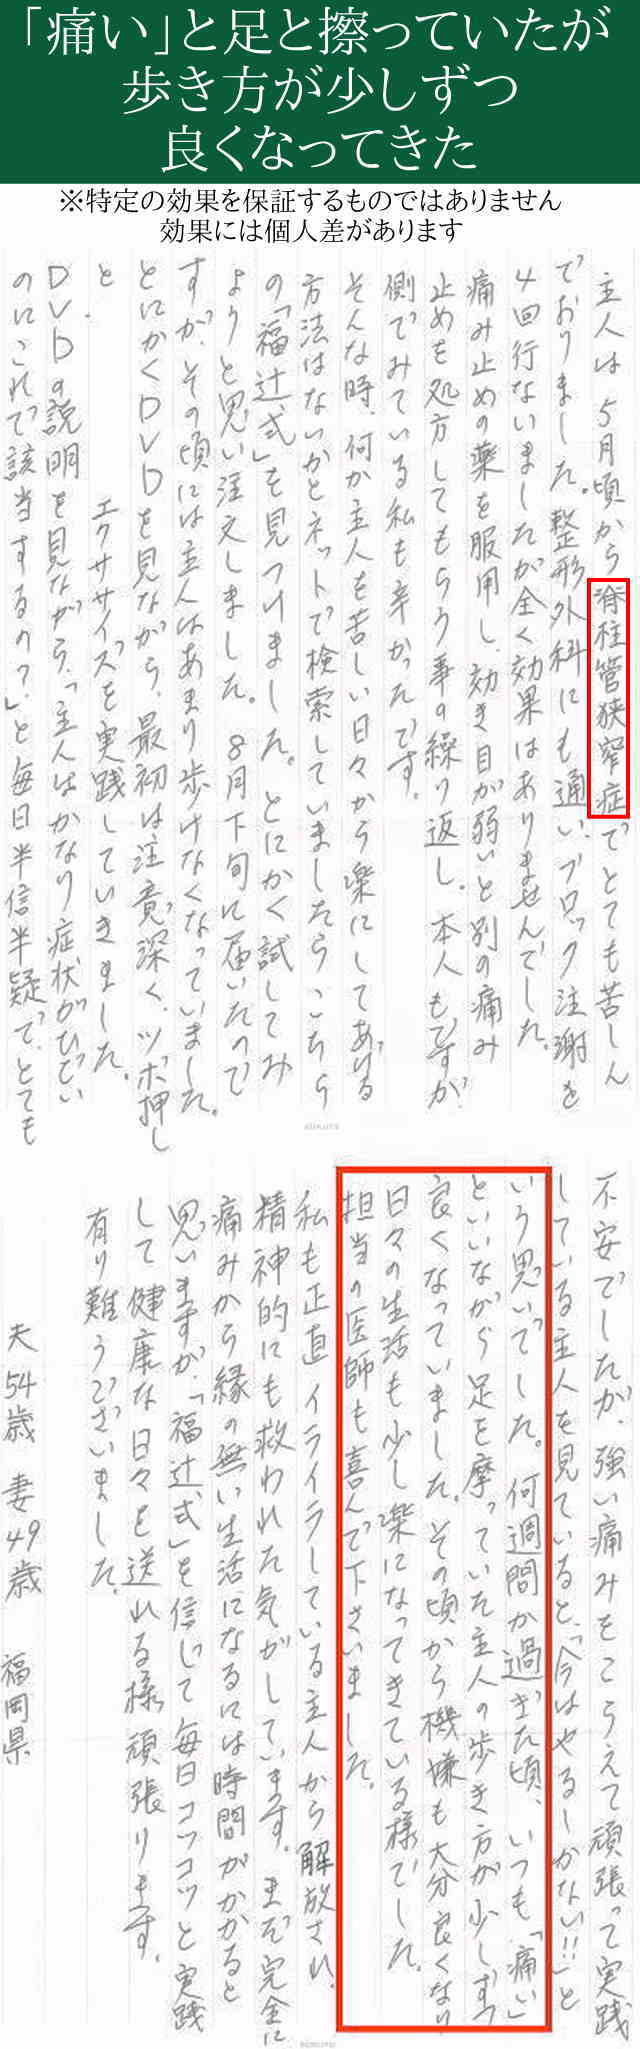 「痛い」と足と擦っていたが
歩き方が少しずつ
良くなってきた
※特定の効果を保証するものではありません
効果には個人差があります
主人は5月頃から脊柱管狭窄症でとても苦しん
でおりました。整形外科にも通い、ブロック注謝を
4回行ないましたが全く効果はありませんでした。
痛み止めの薬を服用し、効き目が弱いと別の痛み
止めを処方してもらう事の繰り返し。本人もですが、
側でみている私も辛かったです。
そんな時、何か主人を苦しい日々から楽にしてあげる
方法はないかとネットで検索していましたらこちら
の「福辻式」を見つけました。とにかく試してみ
ようと思い注文しました。8月下旬に届いたので
すが、その頃には主人はあまり歩けなくなっていました。
とにかくDVDを見ながら、最初は注意深く、ツボ押し
と、
エクササイズを実践していきました。
DVDの説明を見ながら、「主人はかなり症状がひどい
のにこれで該当するの?」と毎日半信半疑で、とても
KOKUYO
不安でしたが、強い痛みをこらえて頑張って実践
している主人を見ていると、「今はやるしかない!!」と
いう思いでした。何週間か過ぎた頃、いつも「痛い」
といいながら足を摩っていた主人の歩き方が少しずつ
良くなっていました。その頃から機嫌も大分良くなり
日々の生活も少し楽になってきている様でした。
担当の医師も喜んで下さいました。
私も正直イライラしている主人から解放され、
精神的にも救われた気がしています。まだ完全に
痛みから縁の無い生活になるには時間がかかると
思いますが、「福辻式」を信じて毎日コツコツと実践
して健康な日々を送れる様、頑張ります。
有り難うございました。
夫54歳 妻49歳 福岡県
KOKUYO